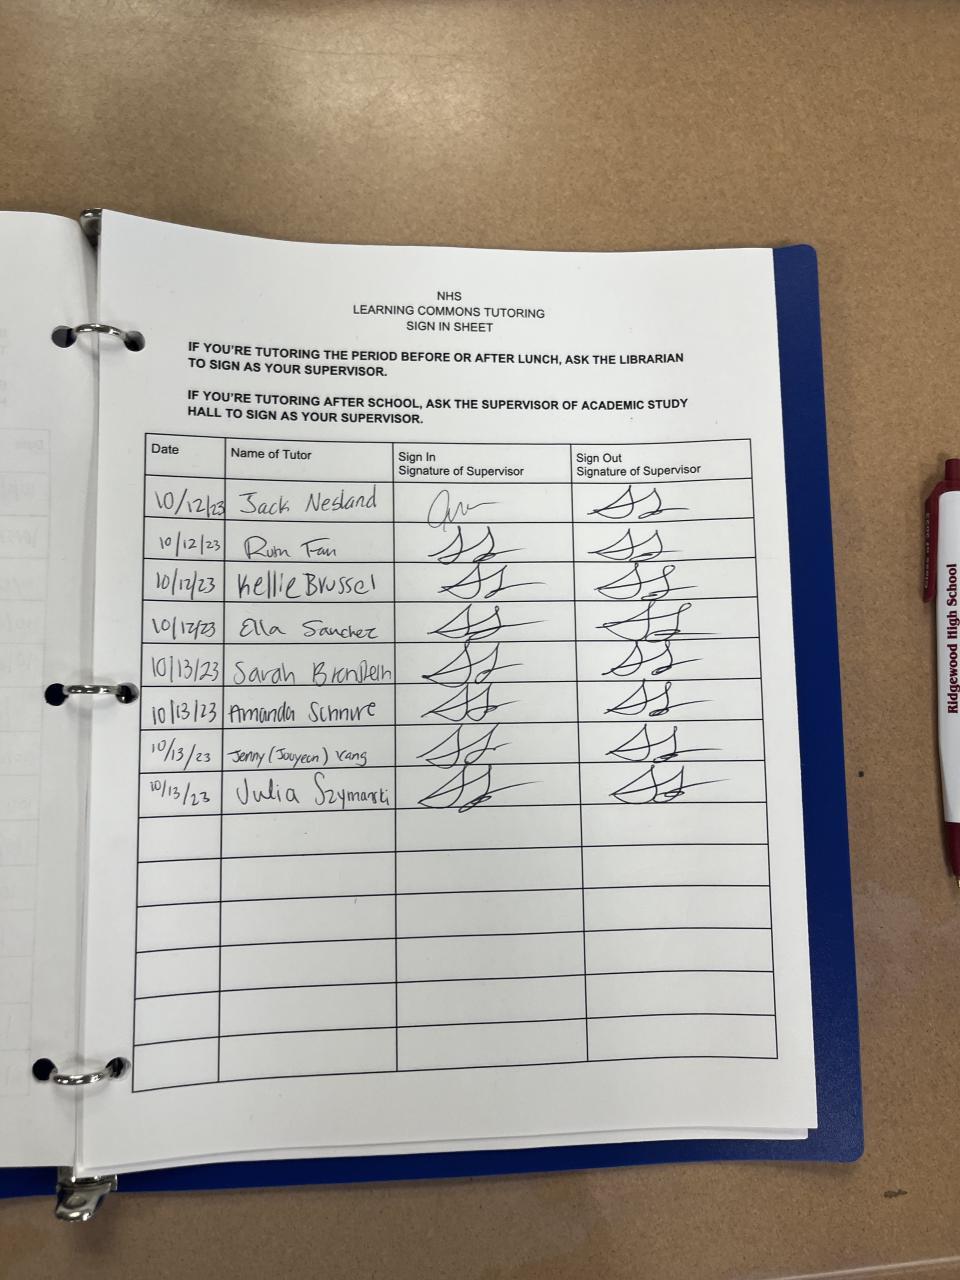 NHS
LEARNING COMMONS TUTORING
SIGN IN SHEET
IF YOU'RE TUTORING THE PERIOD BEFORE OR AFTER LUNCH, ASK THE LIBRARIAN
TO SIGN AS YOUR SUPERVISOR.
IF YOU'RE TUTORING AFTER SCHOOL, ASK THE SUPERVISOR OF ACADEMIC STUDY
HALL TO SIGN AS YOUR SUPERVISOR.
Date Name of Tutor Sign In Signature of Supervisor Sign Out Signature of Supervisor
10/12/23 Jack Nesland
10/12/23 Fan
10/12/23 Kellie Brussel
10/12/23 Ella Sanchez
10/13/23 Sarah
10/13/23 Amanda Schnure
10/13/23 Jenny (Jouyeon) Kang
10/13/23 Julia Szymanski
Class of 2023
Ridgewood High School